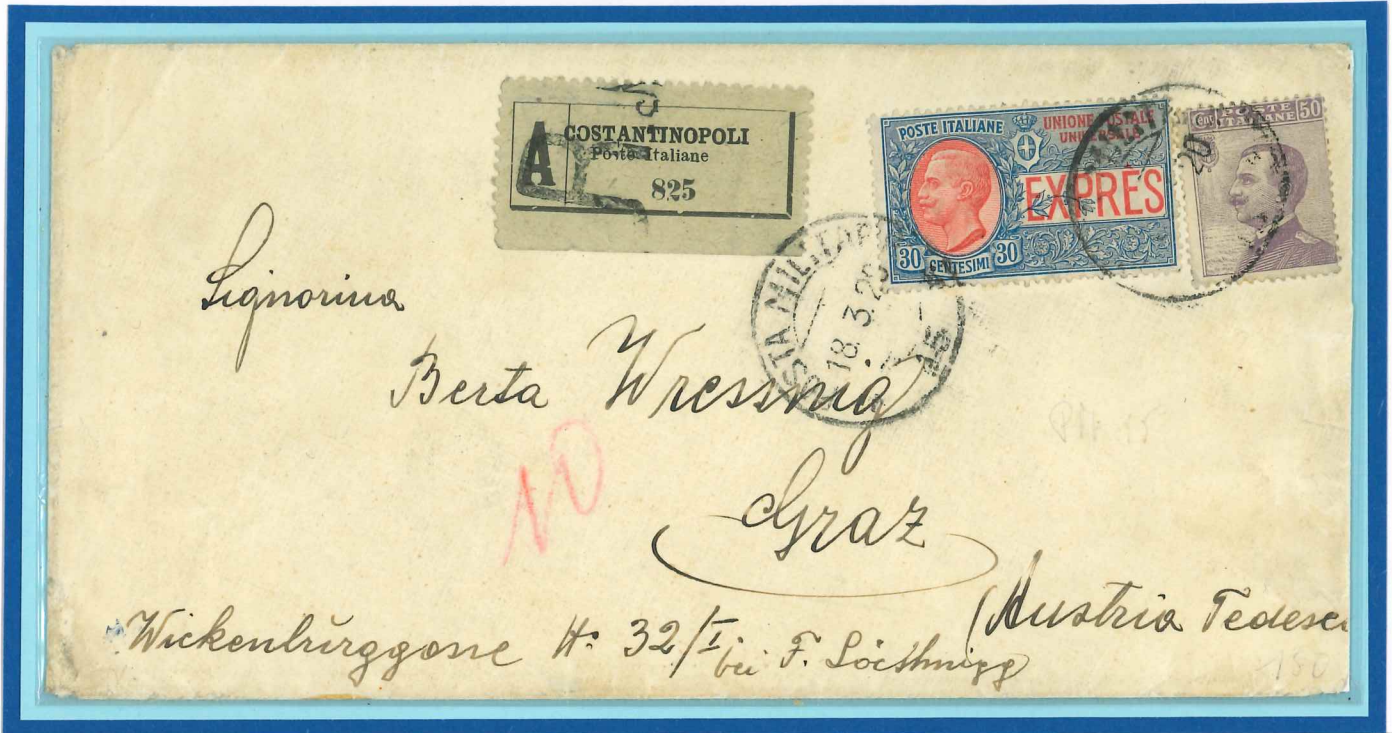 A
COSTANTINOPOLI
Poste Italiane
825
POSTE ITALIANE
UNIONE POSTALE
UNIVERSALE
EXPRES
30 CENTESIMI 30
Cent POSTE 50
ITALIANE
20
STA MILITARE
18.3.20
15
Signorina
Berta Wressnig
Graz
(Austria Tedesca
Wickenburggasse No 32/I
bei F.
10